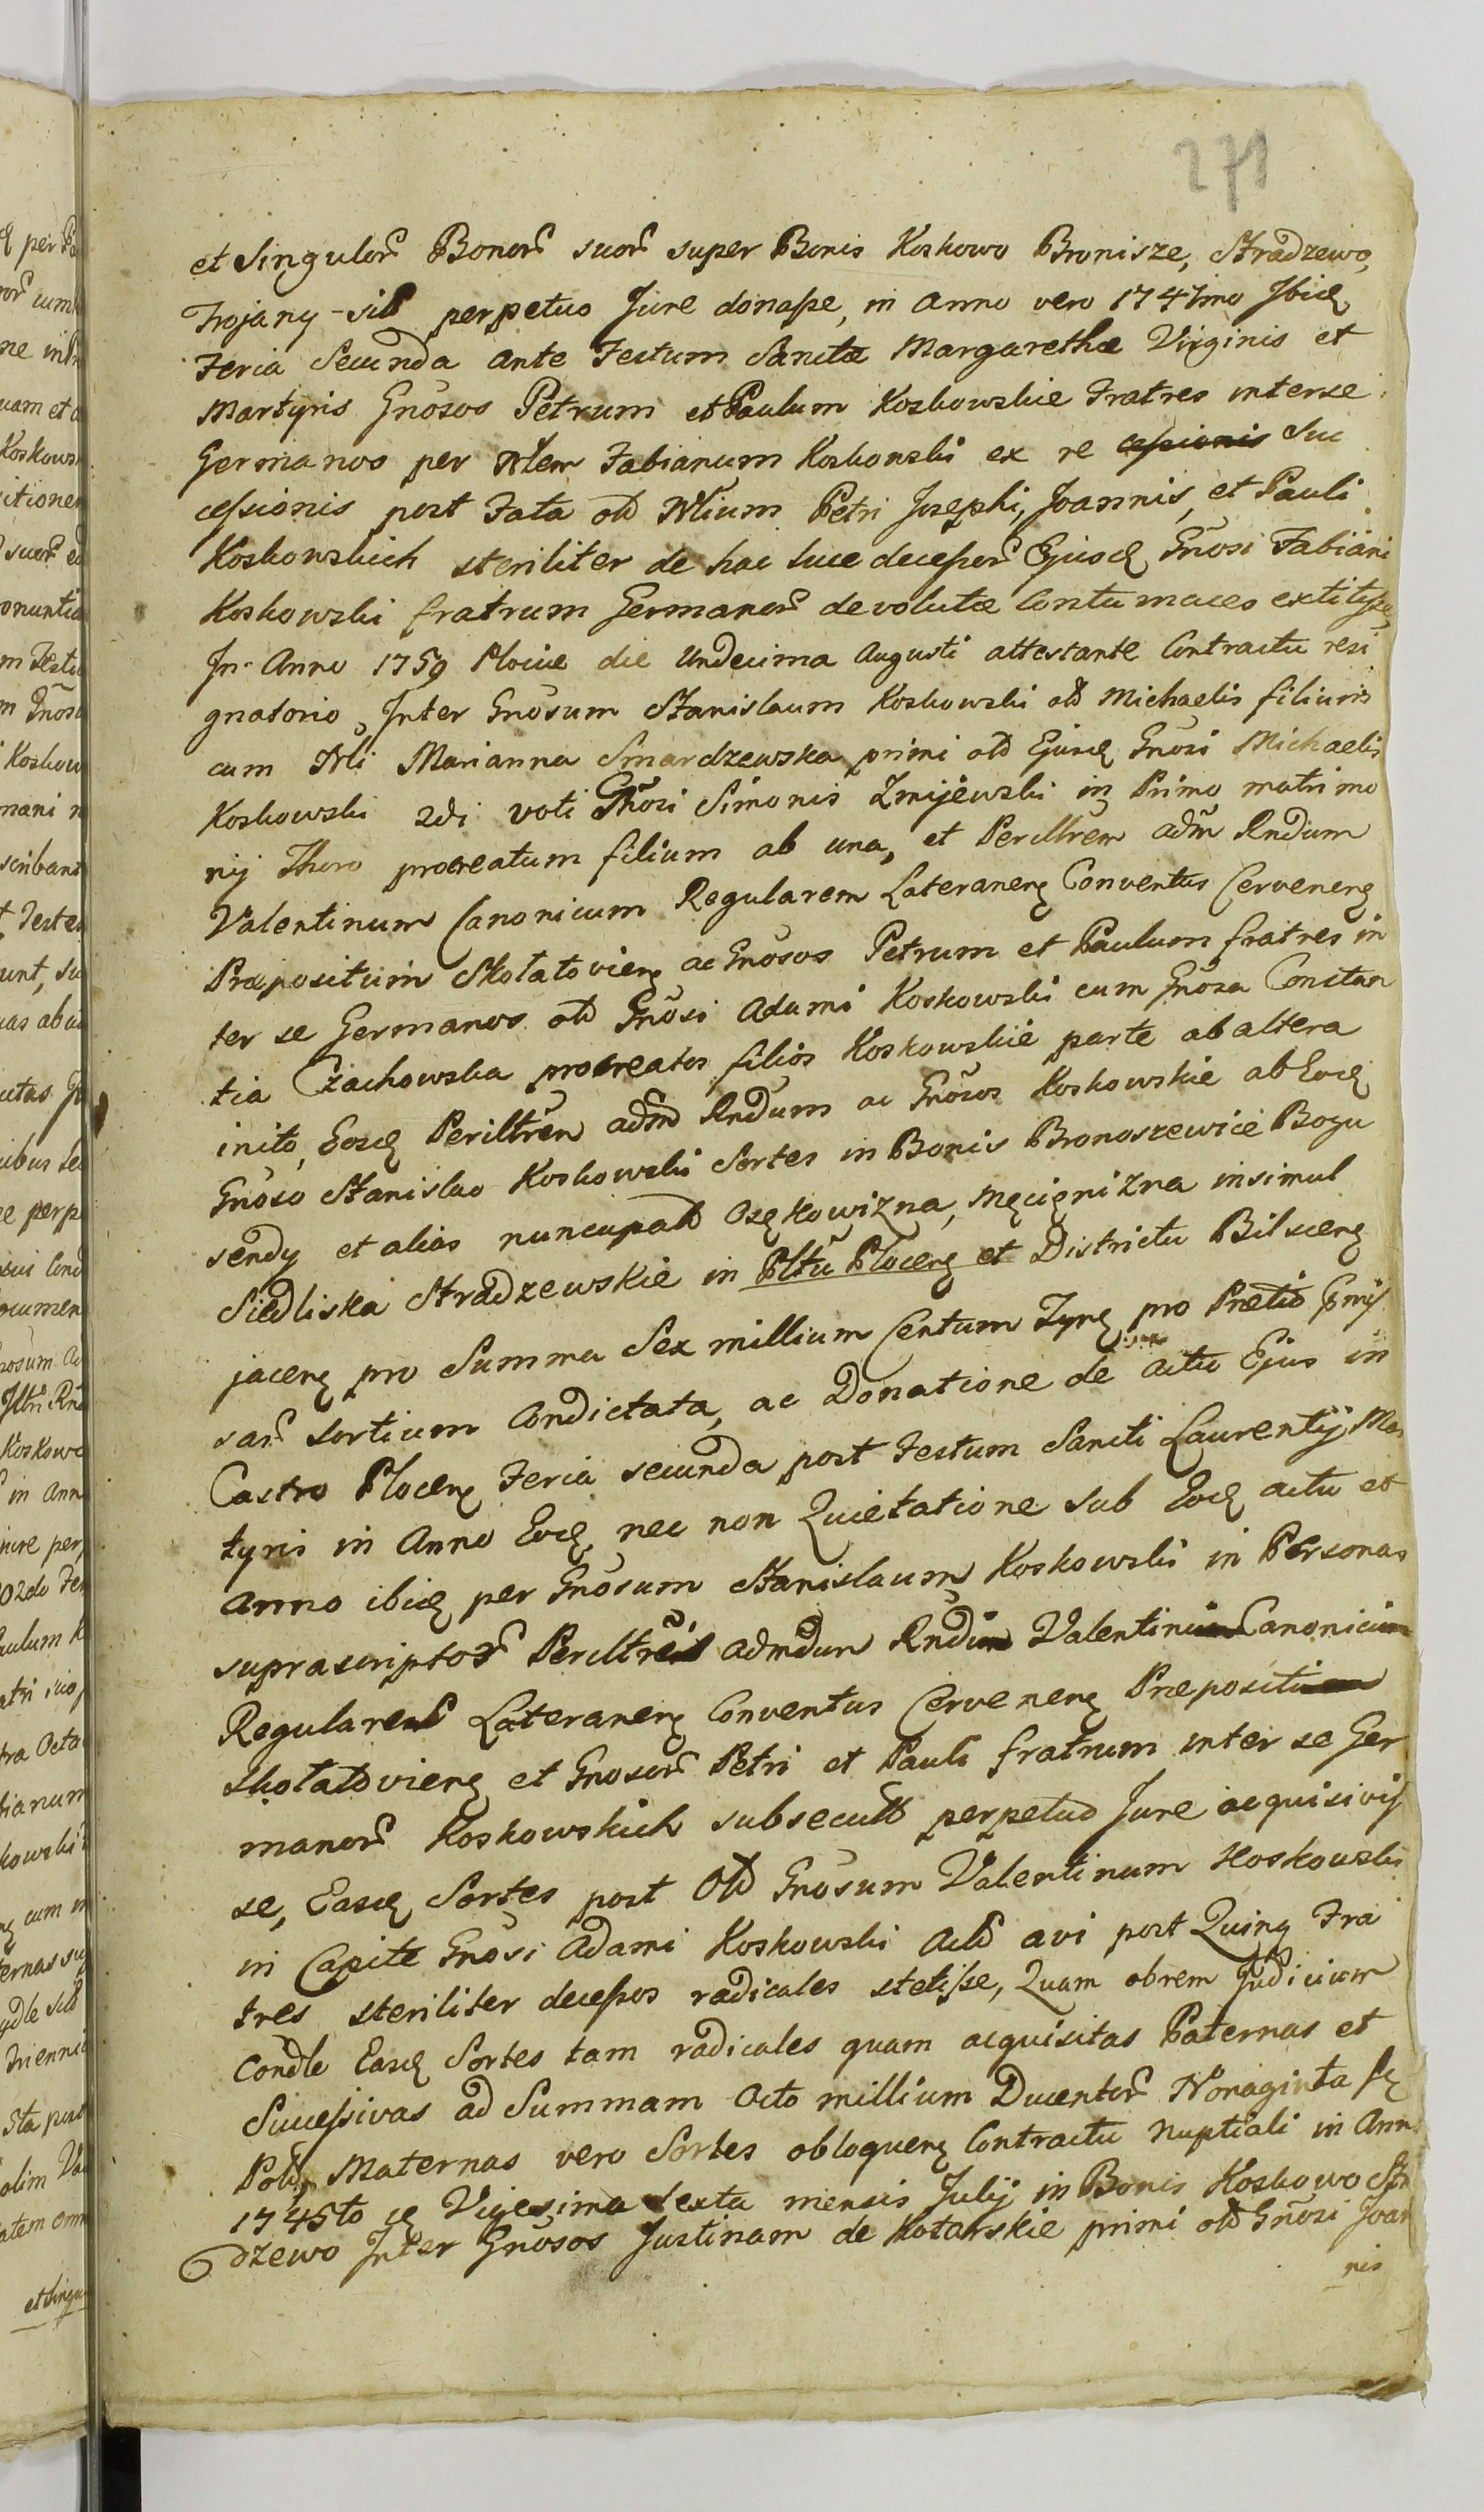 271
et Singulor̃ Bonor̃ suor̃ super Bonis Koskowo Bronisze, Stradzewo,
Trojany - sitt perpetuo Jure donasse, in anno vero 1741mo Ibidę
Feria Secunda ante Festum Sanctæ Margarethæ Virginis et
Martyris Gnosos Petrum et Paulum Koskowskie Fratres inter se
Germanos per Nłem Fabianum Koskowski ex re Suc
cessionis post Fata olt Nlium Petri Josephi, Joannis, et Pauli
Koskowskich steriliter de hac luce decessor̃ Ejusdę Gnosi Fabiani
Koskowski fratrum Germanor̃ devolutæ Contumaces extitisse,
In Anno 1759 Plociæ die Undecima Augusti attestante Contractu resi
gnatorio, Inter Gnosum Stanislaum Koskowski olt Michaelis filium
cum Nłi Marianna Smardzewska primi olt Ejusdę Gnosi Michaelis
Koskowski 2di voti Gnosi Simonis Zmijewski in Primo matrimo
nij Thoro procreatum filium ab una, et Perillrem adm Rndum
Valentinum Canonicum Regularem Lateranenę Conventus Cervenenę
Præpositum Skołatovienę ac Gnosos Petrum et Paulum fratres in
ter se Germanos olt Gnosi Adami Koskowski cum Gnosa Constan
tia Czachowska procreatos filios Koskowskie parte ab altera
inito, Eosdę Perillren adm Rndum ac Gnosos Koskowskie ab Eodę
Gnoso Stanislao Koskowski Sortes in Bonis Bronoszewice Bogu
sendy et alias nuncupatt Osękowizna, Męcięnizna insimul
Siedliska Stradzewskie in Pltu Plocenę et Districtu Bilscenę
jacenę pro Summa Sex millium Centum Tynę pro Pretio Emis
sar̃ Sortium Condictata, ac Donatione de actu Ejus in
Castro Plocenę Feria secunda post Festum Sancti Laurentij Mar
tyris in Anno Eodę, nec non Quietatione sub Eodę actu et
Anno ibidę per Gnosum Stanislaum Koskowski in Personas
suprascriptor̃ Perillris admdum Rndi Valentini Canonici
Regularis Lateranenę Conventus Cervenenę Præpositi
Skołatovienę et Gnosor̃ Petri et Pauli fratrum inter se Ger
manor̃ Koskowskich subsecutt perpetuo Jure acquisivis
se, Easdę Sortes post Olt Gnosum Valentinum Koskowski
in Capite Gnosi Adami Koskowski Actt avi post Quinę Fra
tres steriliter decessos radicales stetisse, Quam obrem Judicium
Condle Easdę Sortes tam radicales quam acquisitas Paternas et
Successivas ad Summam Octo millium Ducentor̃ Nonaginta
Polt, Maternas vero Sortes obloquenę Contractu nuptiali in Anno
1745to Vigesima sexta mensis Julij in Bonis Koskowo Stra
dzewo Inter Gnosos Justinam de Kotarskie primi olt Gnosi Joan
nis